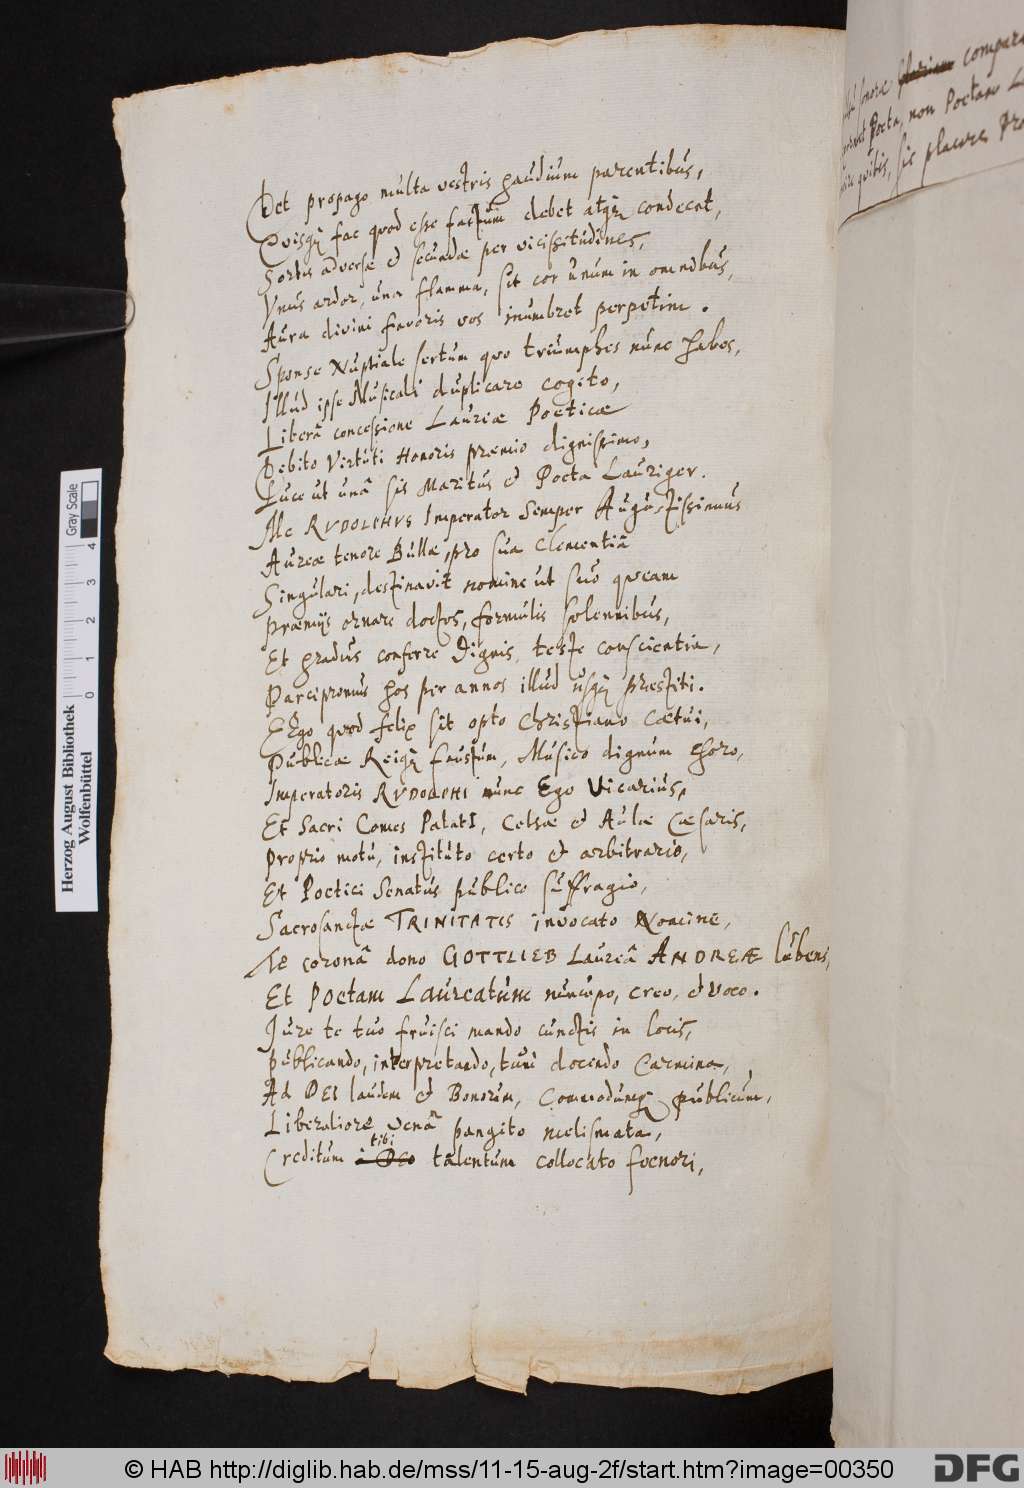 Det propago multa vestris gaudium parentibus,
Quisq; fac quod esse factum debet atq; condecet,
Sortis adversæ & secundæ per vicissitudines,
Vnus ardor, una flamma, sit cor unum in omnibus,
Aura divini favoris vos inumbret perpetim.
Sponse Nuptiale sertum quo triumphes nunc habes,
Illud ipse Musicali duplicare cogito,
Liberâ concessione Lauriæ Poeticæ
Debito Virtuti Honoris præmio dignissimo,
Luce ut unâ sis Maritus & Poeta Lauriger.
Me RVDOLPHVS Imperator Semper Augustissimus
Aureæ tenore Bullæ, pro sua Clementiâ
Singulari, destinavit nomine ut suo queam
Præmijs ornare doctos, formulis solennibus,
Et gradus conferre Dignis, teste conscientia,
Parcipromus hos per annos illud usq; præstiti.
Ergo quod felix sit opto Christiano Cœtui,
Publicæ Reiq; faustum, Musico dignum Choro,
Imperatoris RVDOLPHI nunc Ego Vicarius,
Et Sacri Comes PalatI, Celsæ & Aulæ Cæsaris,
Proprio motu, instituto certo & arbitrario,
Et Poetici Senatus publico suffragio,
Sacrosanctæ TRINITATIS invocato Nomine,
Te coronâ dono GOTTLIEB Laureâ ANDREÆ lubens,
Et Poetam Laureatum nuncupo, creo, & voco.
Jure te tuo fruisci mando cunctis in locis,
Publicando, interpretando, tum docendo Carmina,
Ad DEI laudem & Bonorum, Commodumq; publicum,
Liberaliore venâ pangito melismata,
tibi
Creditum à Deo talentum collocato foenori,
sonore compar
Poeta, non Poetam
quibis, sis placeres
Herzog August Bibliothek
Wolfenbüttel
Gray Scale
0 1 2 3 4
© HAB http://diglib.hab.de/mss/11-15-aug-2f/start.htm?image=00350
DFG